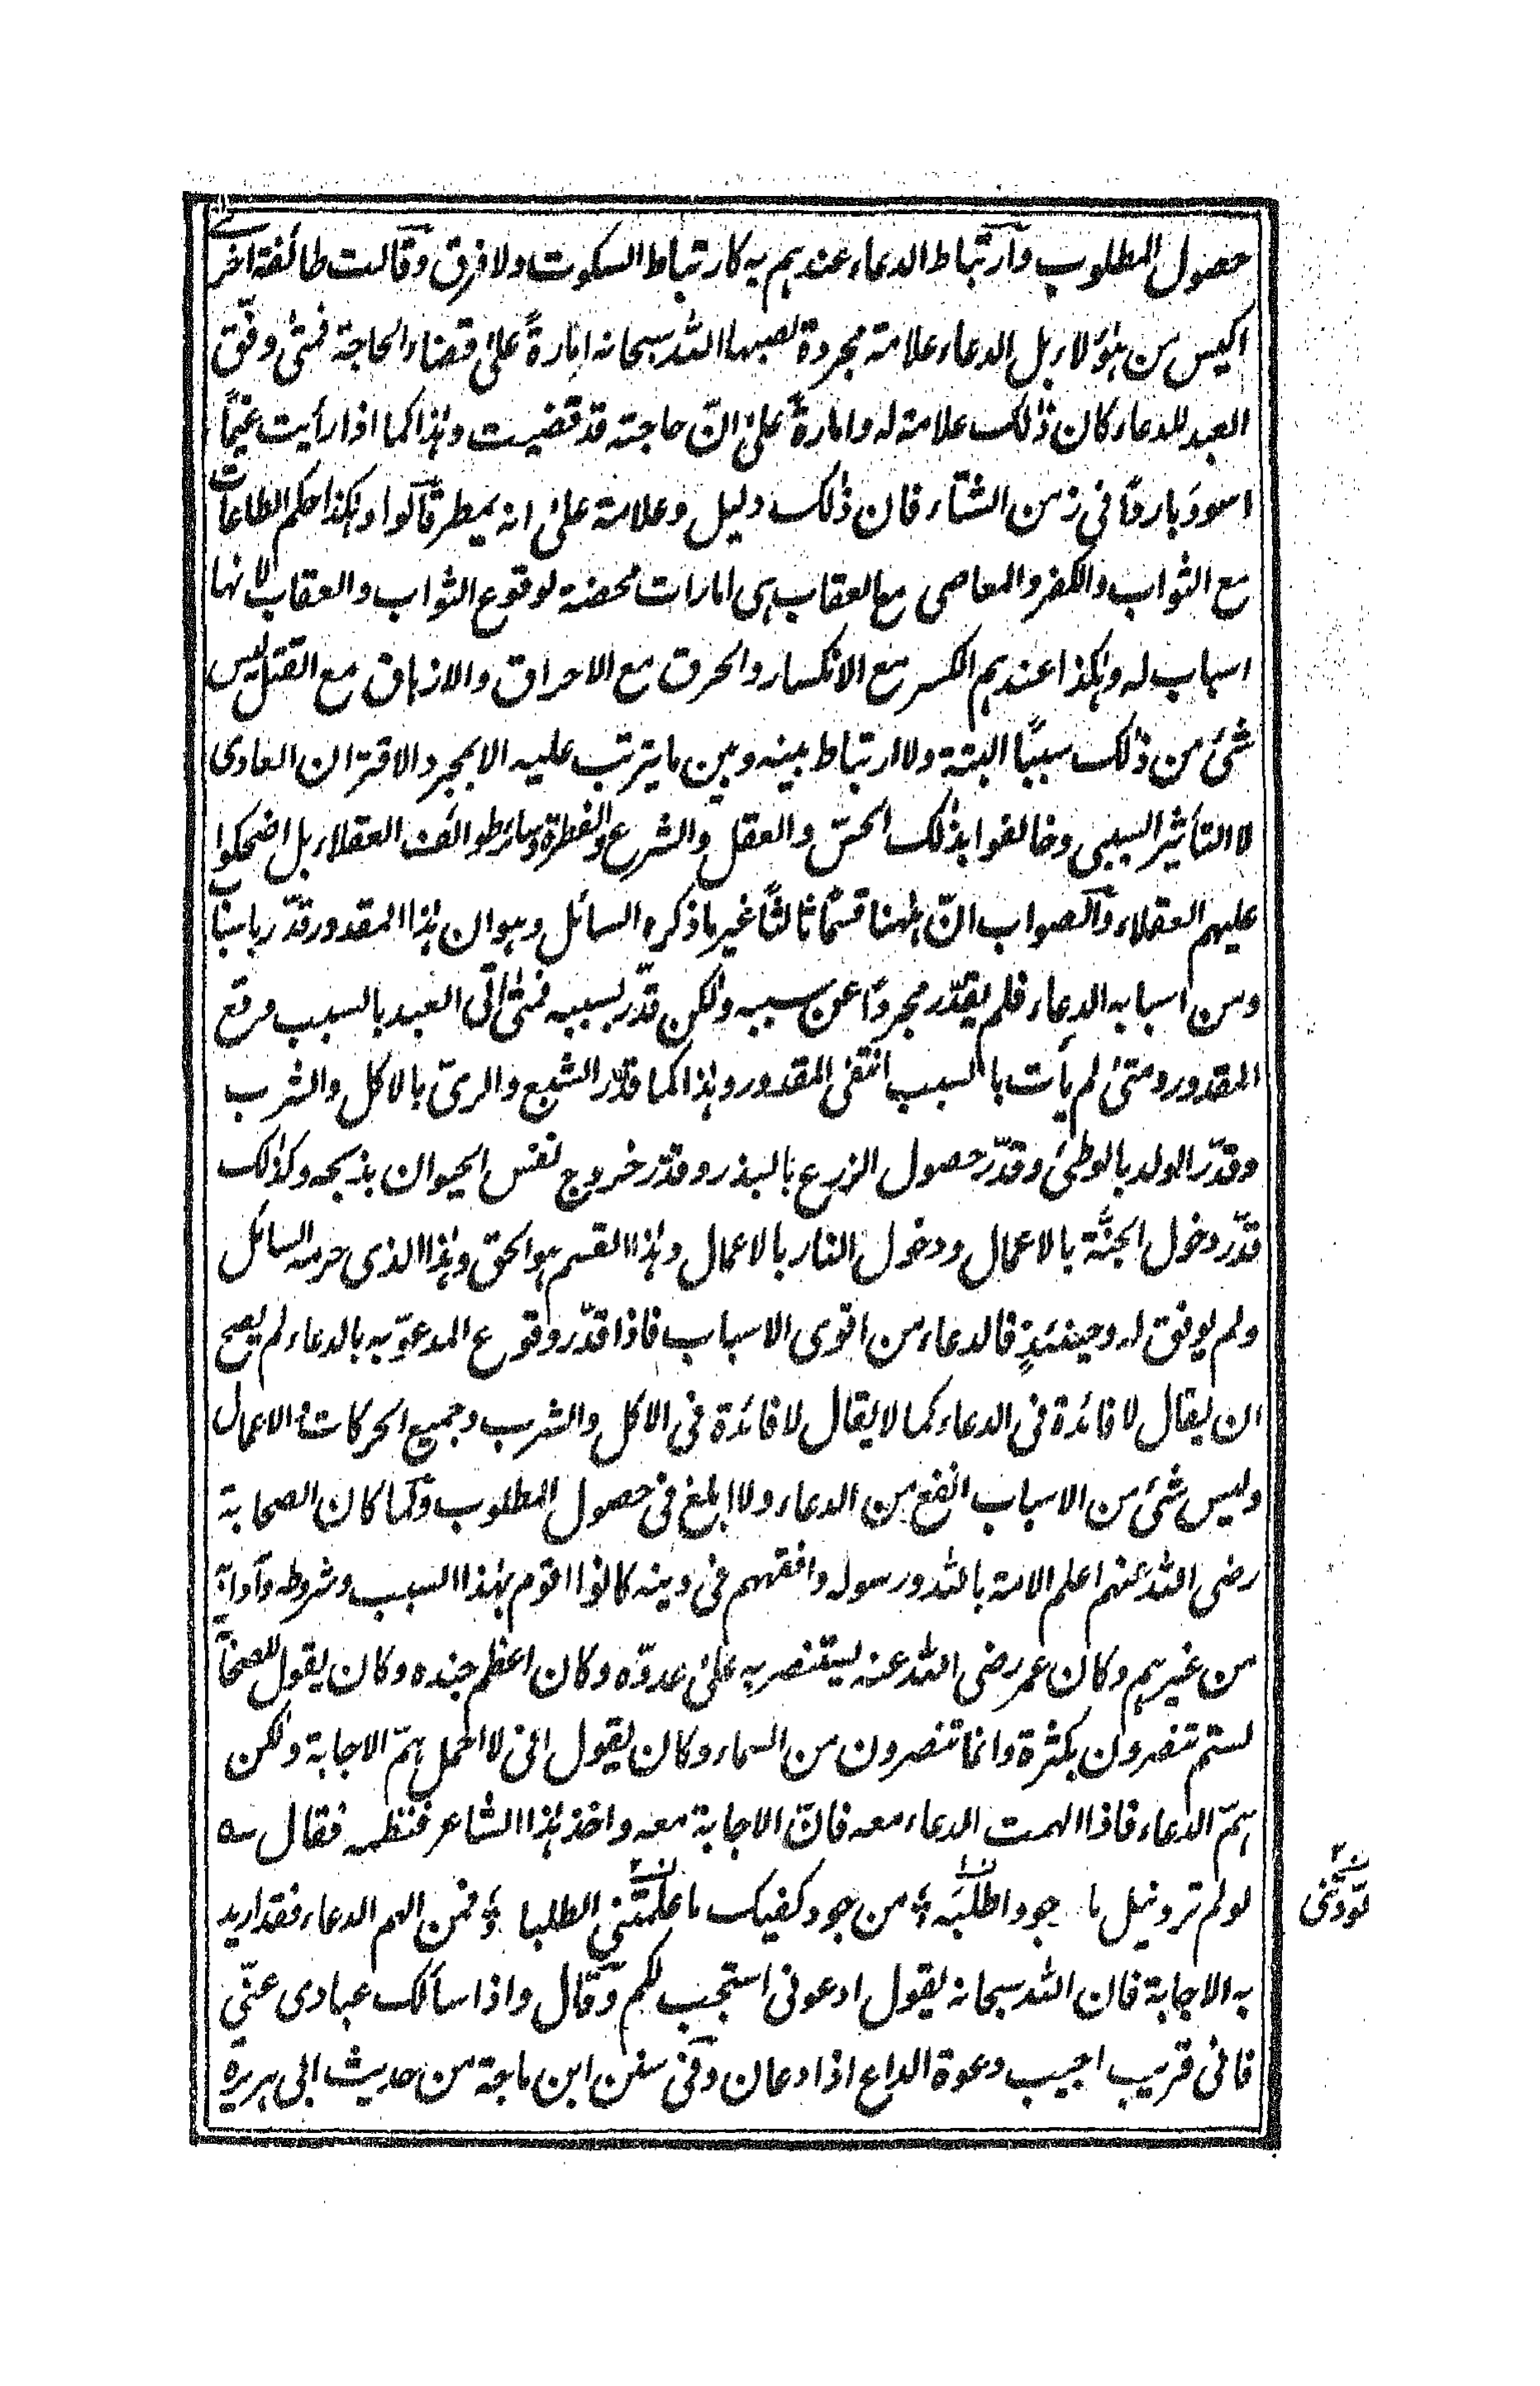 حصول المطلوب وارتباط الدعاء عندهم به كارتباط السكوت ولا فرق وقالت طائفة اخرى
اكيس من هؤلاء بل الدعاء علامة مجردة نصبها الله سبحانه امارةً على قضاء الحاجة فمتى وفّق
العبد للدعاء كان ذلك علامة له وامارة على انّ حاجته قد قضيت وهذا كما اذا رأيت غيمًا
اسودَ باردًا في زمن الشتاء فان ذلك دليل وعلامة على انه يمطر قالوا وهكذا حكم الطاعات
مع الثواب والكفر والمعاصى مع العقاب هى امارات محضة لوقوع الثواب والعقاب لا انها
اسباب له وهكذا عندهم الكسر مع الانكسار والحرق مع الاحراق والازهاق مع القتل ليس
شئ من ذلك سببًا البتة ولا ارتباط بينه وبين ما يترتب عليه الا بمجرد الاقتران العادى
لا التأثير السببى وخالفوا بذلك الحسّ والعقل والشرع والفطرة وسائر طوائف العقلاء بل اضحكوا
عليهم العقلاء والصواب انّ ههنا قسمًا ثالثًا غير ما ذكره السائل وهو ان هذا المقدور قدّر باسباب
ومن اسبابه الدعاء فلم يقدّر مجردًا عن سببه ولكن قدّر بسببه فمتى اتى العبد بالسبب وقع
المقدور ومتى لم يأت بالسبب انتفى المقدور وهذا كما قدّر الشبع والرىّ بالاكل والشرب
وقدّر الولد بالوطئ وقدّر حصول الزرع بالبذر وقدّر خروج نفس الحيوان بذبحه وكذلك
قدّر دخول الجنّة بالاعمال ودخول النار بالاعمال وهذا القسم هو الحق وهذا الذى حرمه السائل
ولم يوفق له وحينئذٍ فالدعاء من اقوى الاسباب فاذا قدّر وقوع المدعوّ به بالدعاء لم يصح
ان يقال لا فائدة فى الدعاء كما لا يقال لا فائدة فى الاكل والشرب وجميع الحركات والاعمال
وليس شئ من الاسباب انفع من الدعاء ولا ابلغ فى حصول المطلوب ولما كان الصحابة
رضى الله عنهم اعلم الامة بالله ورسوله وافقههم فى دينه كانوا اقوم بهذا السبب وشروطه وآدابه
من غيرهم وكان عمر رضى الله عنه يستنصر به على عدوّه وكان اعظم جنده وكان يقول للصحابة
لستم تنصرون بكثرة وانما تنصرون من السماء وكان يقول انى لا احمل همّ الاجابة ولكن
همّ الدعاء فاذا الهمت الدعاء معه فانّ الاجابة معه واخذ هذا الشاعر فنظمه فقال
لو لم ترد نيل ما جود اطلبَه من جود كفيك ما علّمتنى الطلبا فمن الهم الدعاء فقد اريد
به الاجابة فان الله سبحانه يقول ادعونى استجب لكم وقال واذا سألك عبادى عنّى
فانى قريب اجيب دعوة الداع اذا دعان وفى سنن ابن ماجة من حديث ابى هريرة